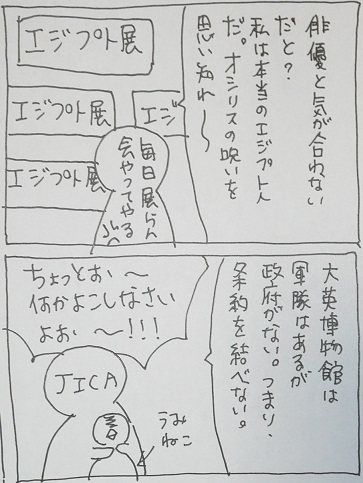 俳優と気が合わない
だと?
私は本当のエジプト人
だ。オシリスの呪いを
思い知れ〜
エジプト展
エジプト展
エジ
エジプト展
毎日展らん
会やってやる
大英博物館は
軍隊はあるが
政府がない。つまり、
条約を結べない。
ちょっとぉ〜
何かよこしなさい
よぉ〜!!!
JICA
春
うみ
ねこ